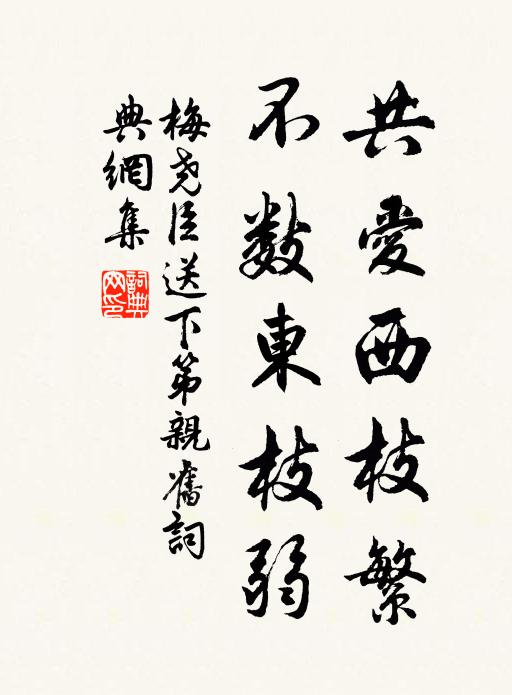 共愛西枝繁
不數東枝弱
梅堯臣送下第親舊詞
典網集
詞典
网印